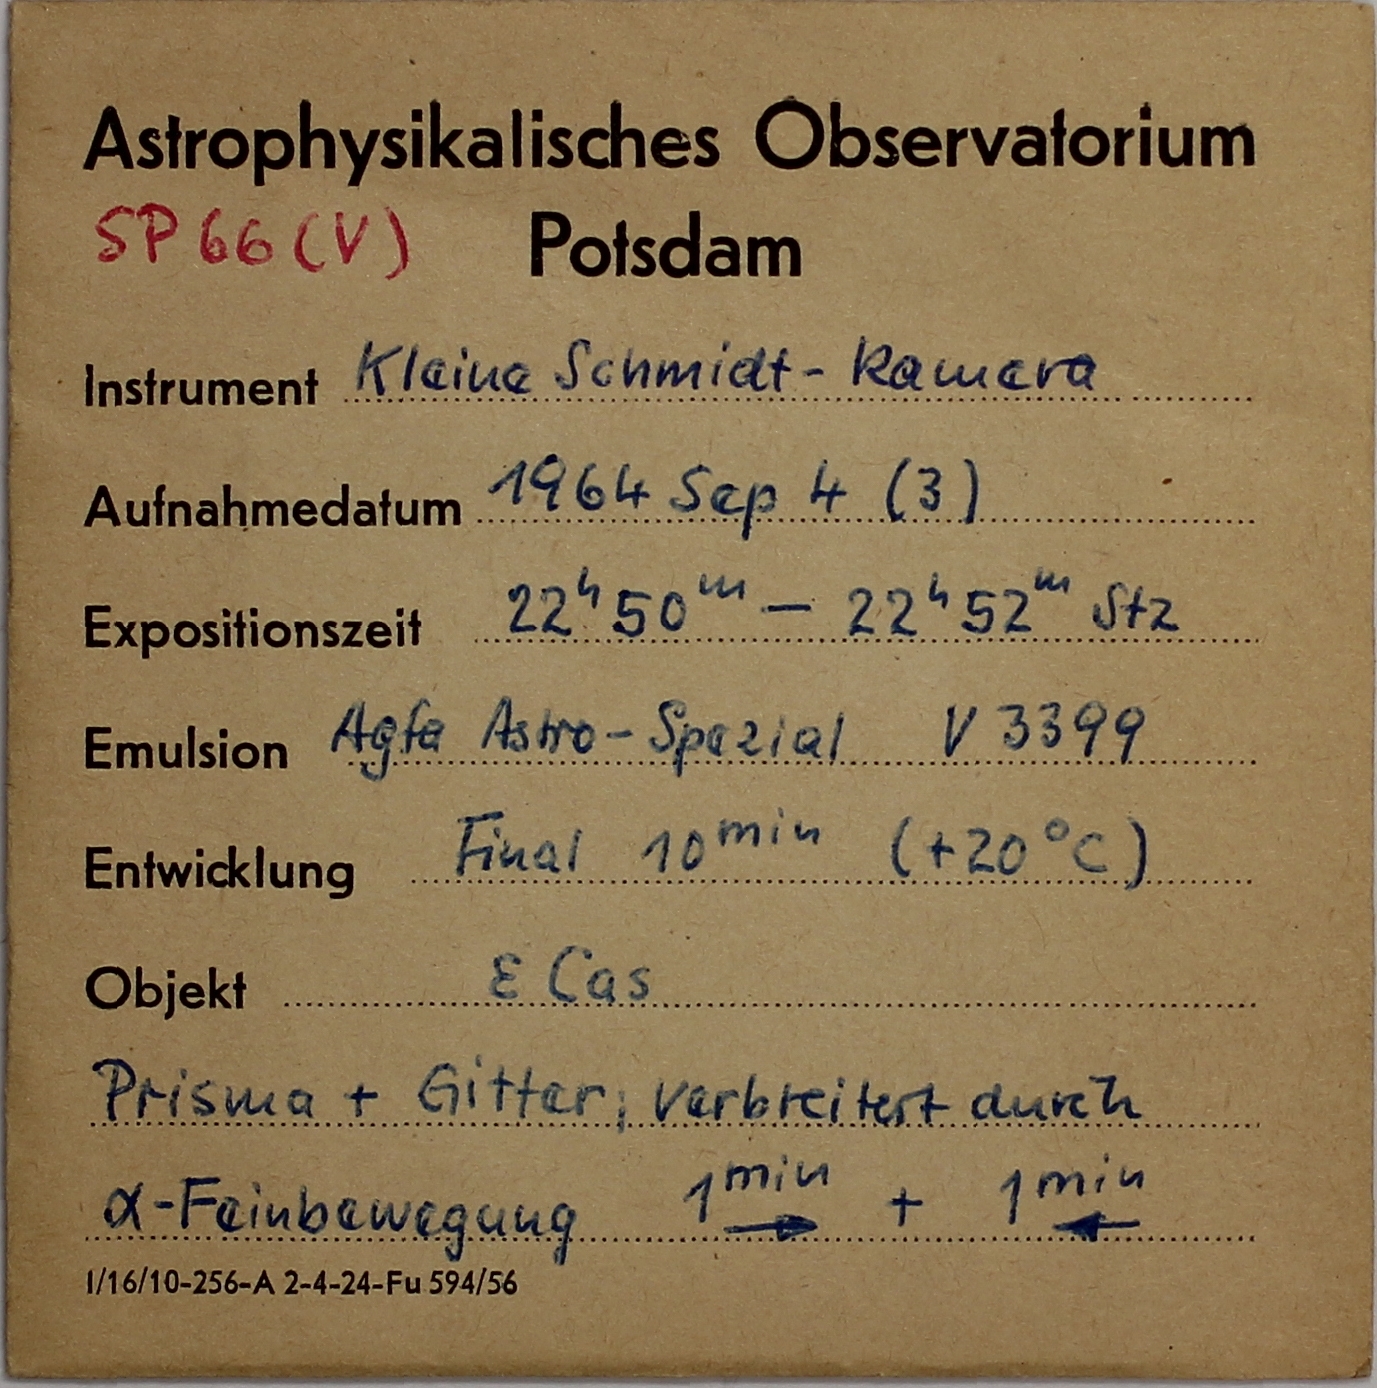 Astrophysikalisches Observatorium
SP 66 (V) Potsdam
Instrument Kleine Schmidt-Kamera
Aufnahmedatum 1964 Sep 4 (3)
Expositionszeit 22ʰ50ᵐ – 22ʰ52ᵐ Stz
Emulsion Agfa Astro-Spezial V 3399
Entwicklung Final 10ᵐⁱⁿ (+20°C)
Objekt ε Cas
Prisma + Gitter; verbreitert durch
α-Feinbewegung 1ᵐⁱⁿ → + 1ᵐⁱⁿ ←
I/16/10-256-A 2-4-24-Fu 594/56